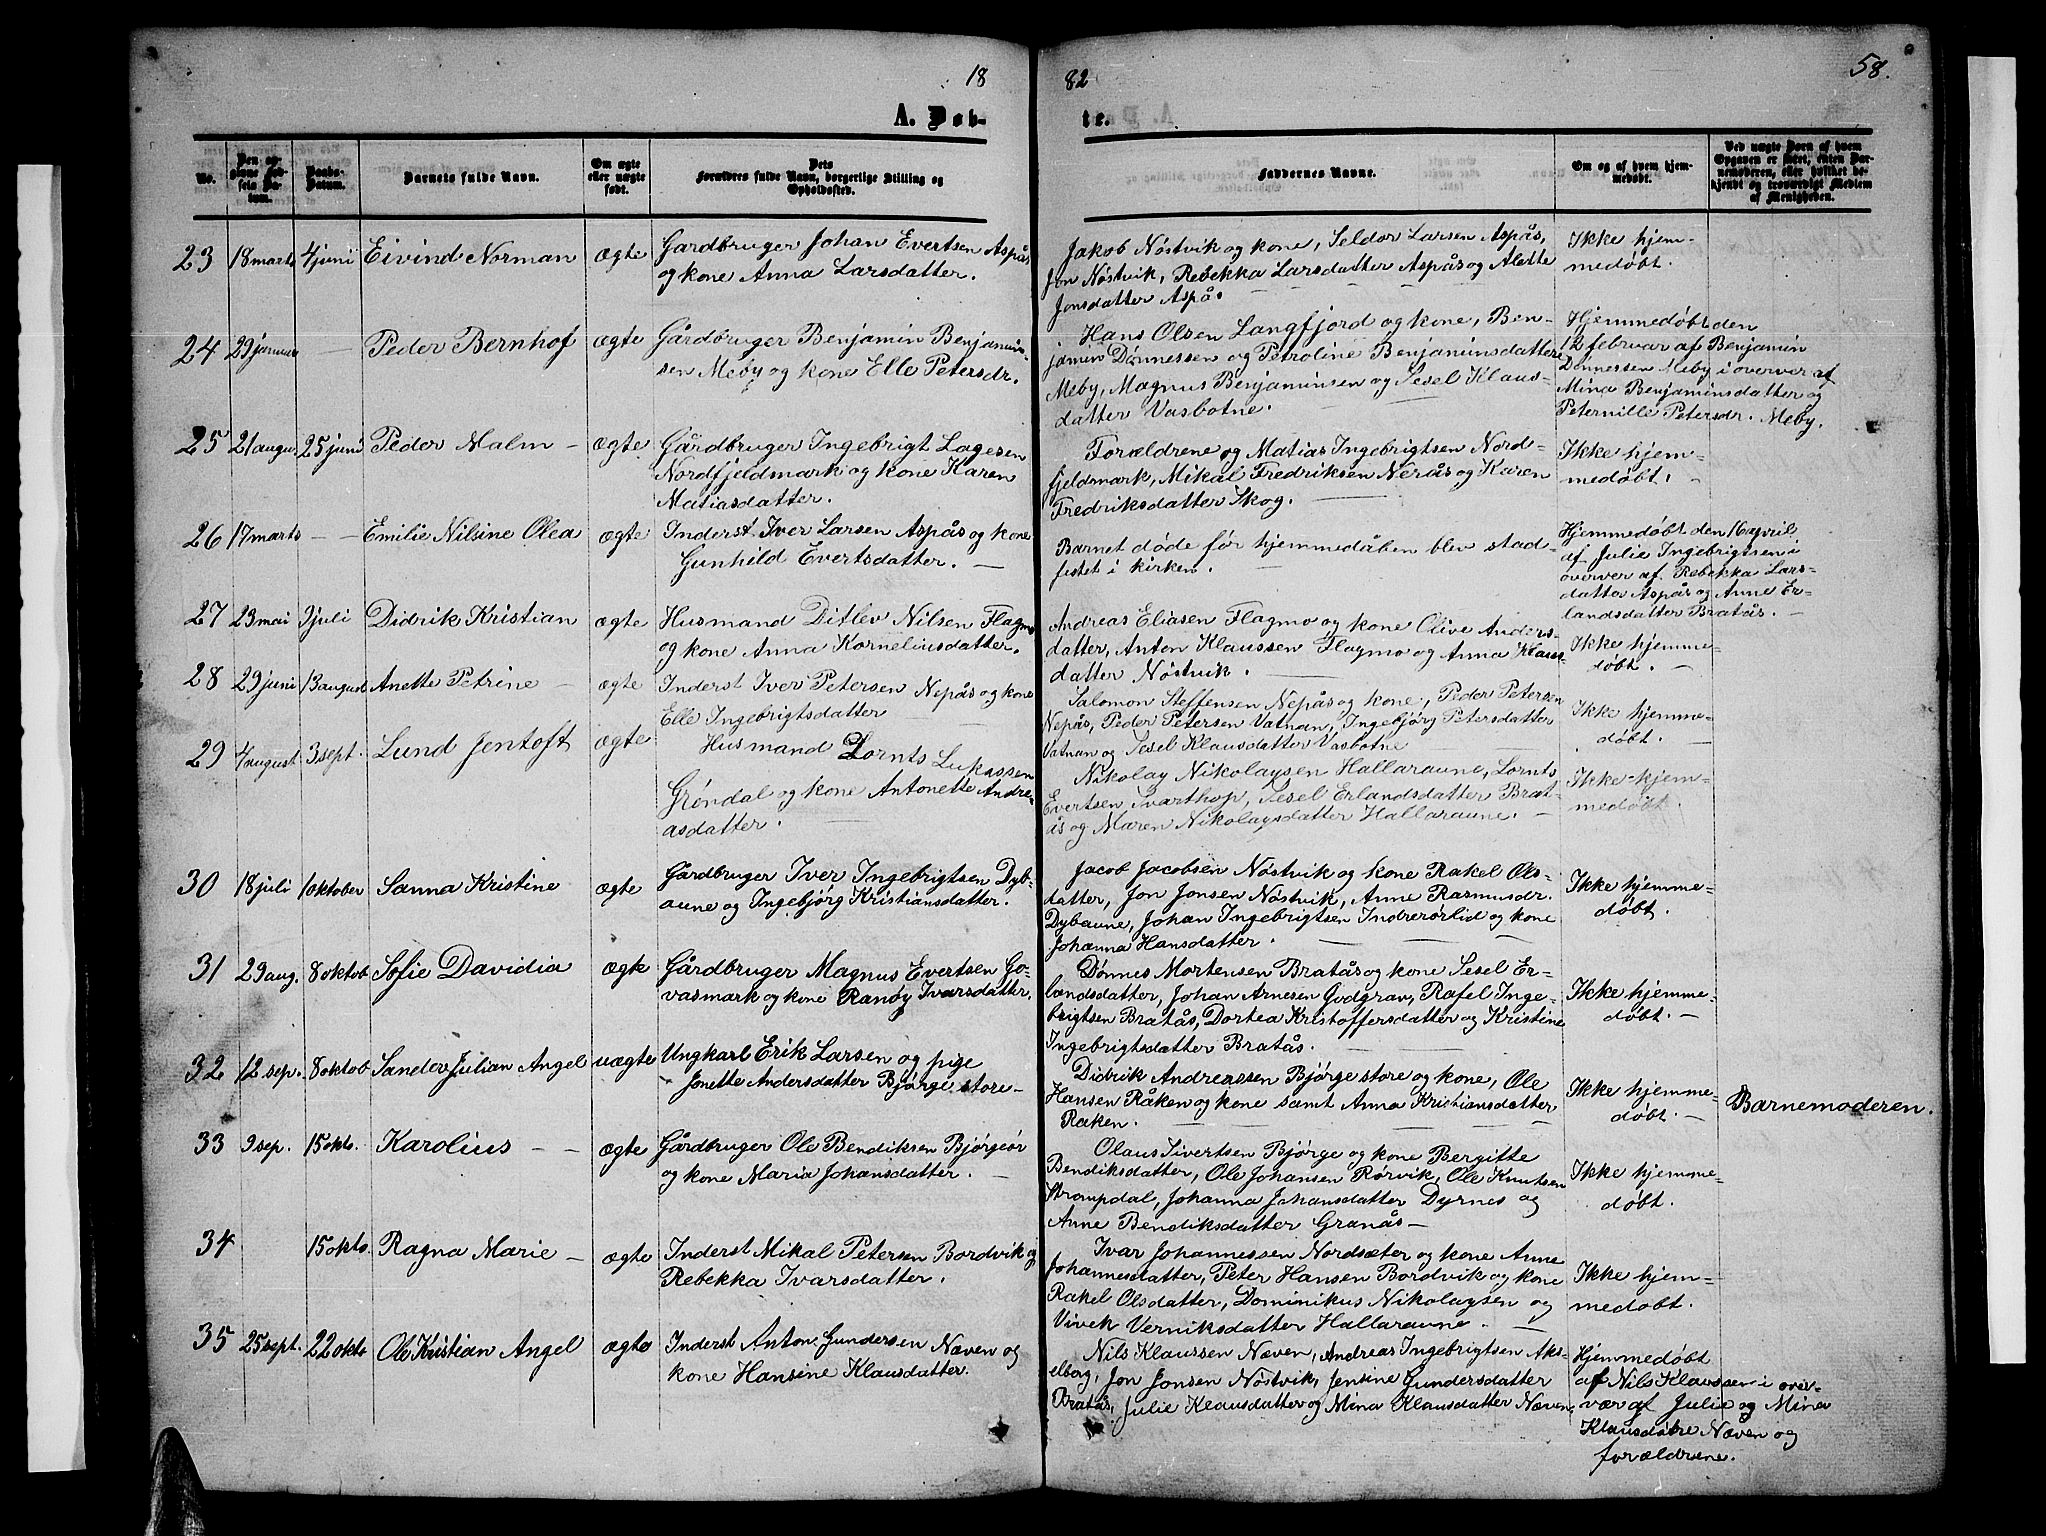 18
82
58.
A. Døb-
te.
No.
Den opgivne Fødsels Datum.
Daabs-Datum.
Barnets fulde Navn.
Om ægte eller uægte født.
Dets Forældres fulde Navn, borgerlige Stilling og Opholdssted.
Faddernes Navne.
Om og af hvem hjemmedøbt.
Ved uægte Børn af hvem Opgaven er skeet, enten Barnemoderen, eller hvilket bekjendt og troværdigt Medlem af Menigheden.
23 18 marts 4 juni Eivind Norman ægte
Gårdbruger Johan Evertsen Aspås
og kone Anna Larsdatter.
Jakob Nöstvik og kone, Seldor Larsen Aspås,
Jon Nöstvik, Rebekka Larsdatter Aspås og Alette
Jonsdatter Aspås
Ikke hjem-
medøbt.
24 29 januar — Peder Bernhof ægte
Gårdbruger Benjamin Benjamin-
sen Meby og kone Elle Petersdr.
Hans Olsen Langfjord og kone, Ben-
jamin Dønnessen og Petroline Benjaminsdatter
Meby, Magnus Benjaminsen og Sesel Klaus-
datter Vasbotne.
Hjemmedøbt den
12 februar af Benjamin
Dønnessen Meby i overver af
Mina Benjaminsdatter og
Peternille Petersdr. Meby.
25 21 august 25 juni Peder Malm — ægte
Gårdbruger Ingebrigt Lagesen
Nordfjeldmark og kone Karen
Matiasdatter.
Forældrene og Matias Ingebrigtsen Nord-
fjeldmark, Mikal Fredriksen Nerås og Karen
Fredriksdatter Skog.
Ikke hjem-
medøbt.
26 17 marts — Emilie Nilsine Olea ægte
Inderst Iver Larsen Aspås og kone
Gunhild Evertsdatter.
Barnet døde før hjemmedåben blev stad-
festet i kirken.
Hjemmedøbt den 16 april
af Julie Ingebrigtsen i
overver af Rebekka Lars-
datter Aspås og Anne Er-
landsdatter Bratås.
27 23 mai 9 juli Didrik Kristian ægte
Husmand Ditlev Nilsen Flagmo
og kone Anna Korneliusdatter.
Andreas Eliasen Flagmo og kone Olive Anders-
datter, Anton Klaussen Flagmo og Anna Klaus-
datter Nöstvik.
Ikke hjemme-
døbt.
28 29 juni 13 august Anette Petrine — ægte
Inderst Iver Petersen Nepås og kone
Elle Ingebrigtsdatter
Salomon Steffensen Nepås og kone, Peder Petersen
Nepås, Peder Petersen Vatnan, Ingebjörg Petersdatter
Vatnan og Sesel Klausdatter Vasbotne
Ikke hjemme-
døbt.
29 4 august 3 sept. Lund Jentoft ægte
Husmand Lornts Lukassen
Grøndal og kone Antonette Andre-
asdatter.
Nikolay Nikolaysen Hallaraune, Lornts
Evertsen Svarthop, Sesel Erlandsdatter Brat-
ås og Maren Nikolaysdatter Hallaraune.
Ikke hjem-
medøbt.
30 18 juli 1 oktober Sanna Kristine ægte
Gårdbruger Iver Ingebrigtsen Dyb-
aune og Ingebjörg Kristiansdatter.
Jacob Jacobsen Nöstvik og kone Rakel Ols-
datter, Jon Jonsen Nöstvik, Anne Rasmusdr.
Dybaune, Johan Ingebrigtsen Indrerörlid og kone
Johanna Hansdatter.
Ikke hjemme-
døbt.
31 29 aug. 8 oktob Sofie Davidia ægte
Gårdbruger Magnus Evertsen Go-
vasmark og kone Ranöy Ivarsdatter.
Dønnes Mortensen Bratås og kone Sesel Er-
landsdatter, Johan Arnesen Godgrav, Rafel Inge-
brigtsen Bratås, Dortea Kristoffersdatter og Kristine
Ingebrigtsdatter Bratås.
Ikke hjemme-
døbt.
32 12 sep. 8 oktob Sander Julian Angel uægte
Ungkarl Erik Larsen og pige
Jonette Andersdatter Bjørge store —
Didrik Andreassen Bjørge store og kone, Ole
Hansen Råken og kone samt Anna Kristiansdatter
Råken.
Ikke hjemme-
døbt.
Barnemoderen.
33 9 sep. 15 okto. Karolius — ægte
Gårdbruger Ole Bendiksen Bjørgeör
og kone Maria Johansdatter.
Olaus Sivertsen Bjørge og kone Bergitte
Bendiksdatter, Ole Johansen Rörvik, Ole Knutsen
Strompdal, Johanna Johansdatter Dyrnes og
Anne Bendiksdatter Granås —
Ikke hjemme-
døbt.
34 15 okto. Ragna Marie — ægte
Inderst Mikal Petersen Bordvik og
Rebekka Ivarsdatter.
Ivar Johannessen Nordsæter og kone Anne
Johannesdatter, Peter Hansen Bordvik og kone
Rakel Olsdatter, Dominikus Nikolaysen og
Vivek Verniksdatter Hallaraune.
Ikke hjem-
medøbt.
35 25 sept. 22 okto Ole Kristian Angel ægte
Inderst Anton Gundersen Næven og
kone Hansine Klausdatter.
Nils Klaussen Næven, Andreas Ingebrigtsen Aks-
elborg, Jon Jonsen Nöstvik, Jensine Gundersdatter
Bratås, Julie Klausdatter og Mina Klausdatter Næven.
Hjemmedøbt
af Nils Klaussen i over-
vær af Julie og Mina
Klausdøtre Næven og
forældrene.